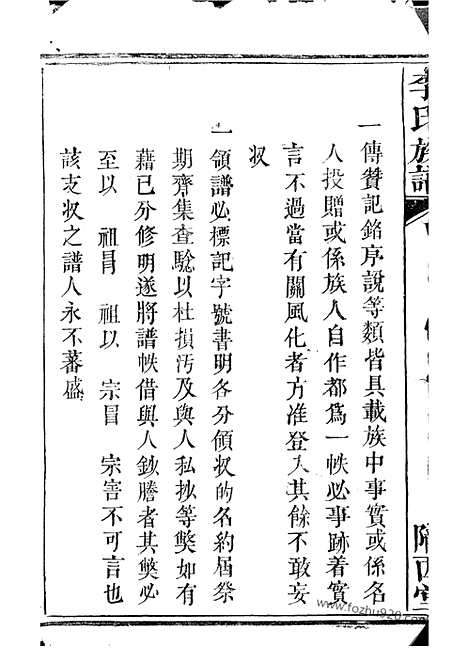 李氏族譜
隴西堂
一傳贊記銘序說等類皆具載族中事實或係名
人投贈或係族人自作都爲一帙必事跡着實
言不過當有關風化者方准登入其餘不敢妄
收
一領譜必標記字號書明各分領收的名約屆祭
期齊集查騐以杜損汚及與人私抄等獘如有
藉已分修明遂將譜帙借與人鈔謄者其獘必
至以 祖冐 祖以 宗冒 宗害不可言也
該支收之譜人永不蕃盛
www.fozhu920.com